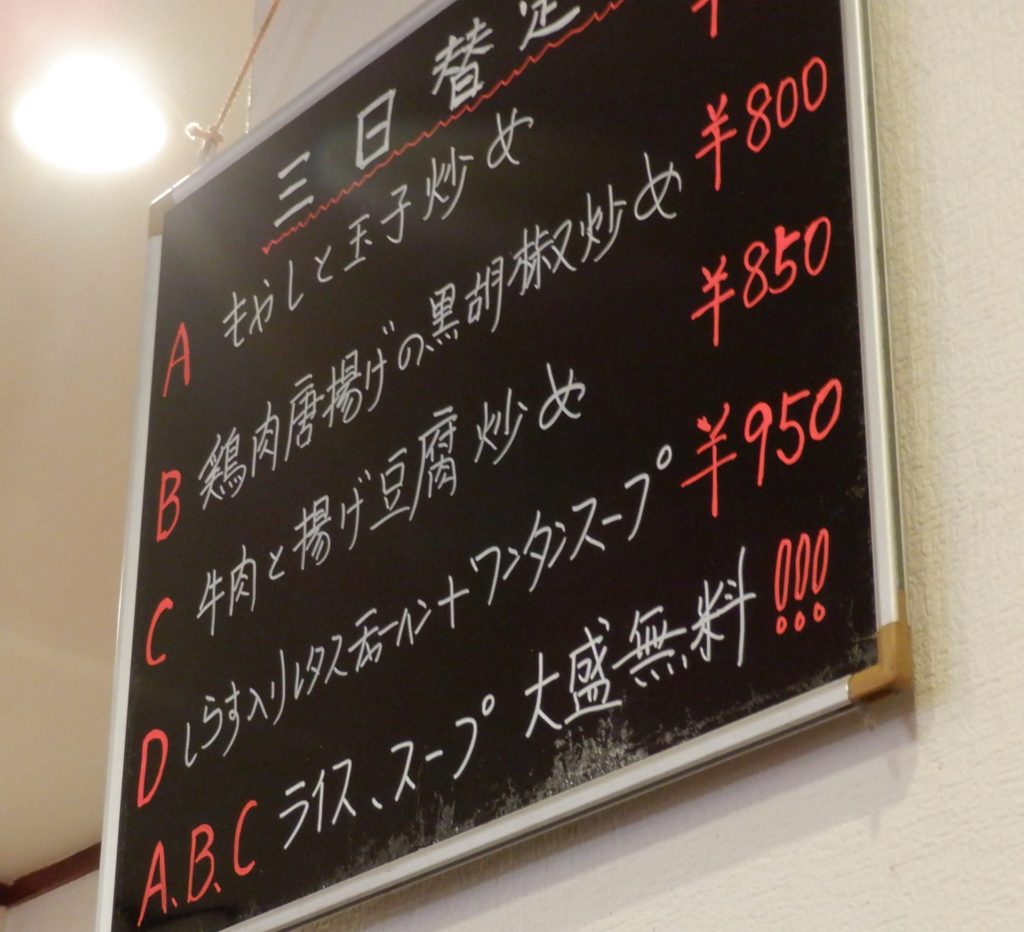 三日替定
A もやしと玉子炒め ¥
B 鶏肉唐揚げの黒胡椒炒め ¥800
C 牛肉と揚げ豆腐炒め ¥850
D しらす入りレタスチャーハン+ワンタンスープ ¥950
A.B.C ライス、スープ大盛無料!!!